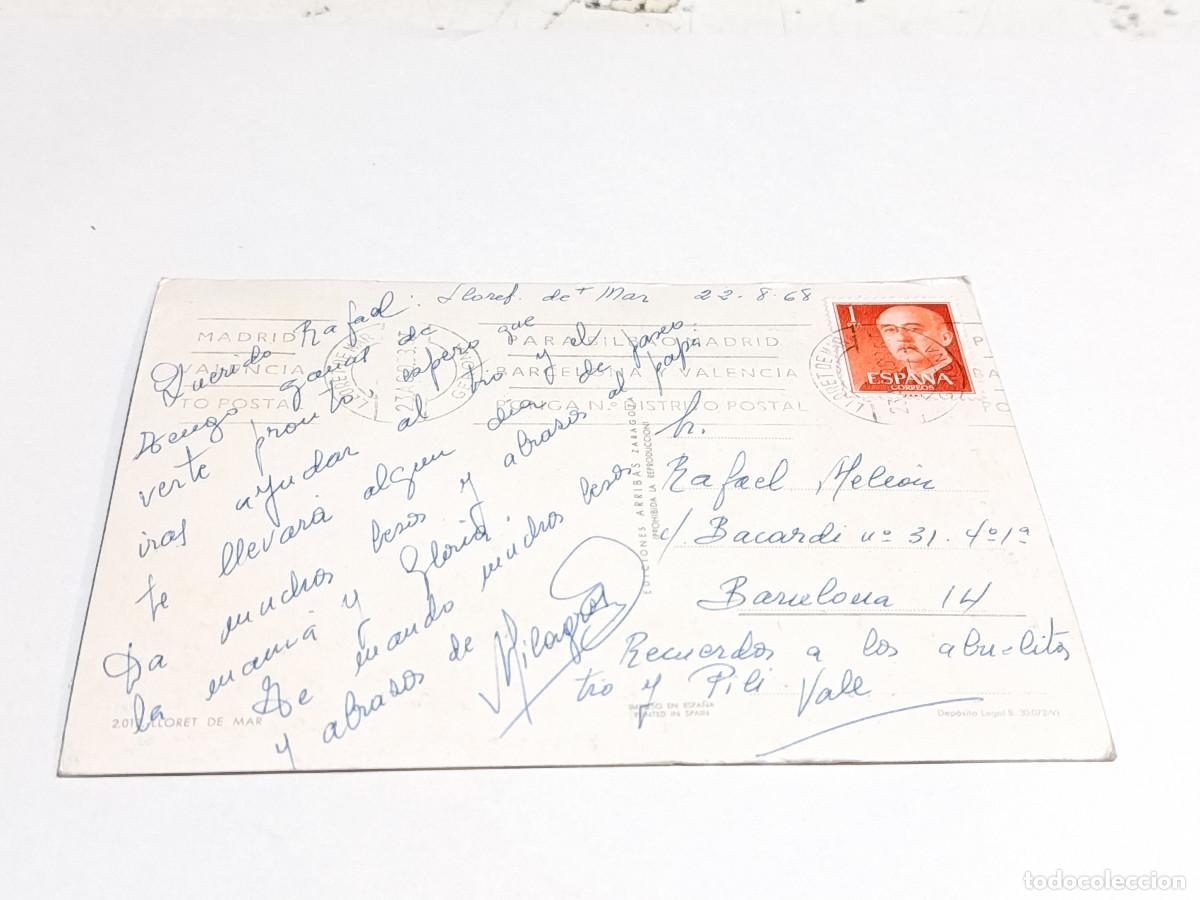 Lloret de Mar 22-8-68
Querido Rafael:
Tengo ganas de
verte pronto espero que
iras ayudar al tio y el
te llevará algun dia de paseo
Da muchos besos y abrazos al papá
la mamá y Gloria.
Te mando muchos besos
y abrazos de Milagros
MADRID
VALENCIA
TO POSTAL
LLORET DE MAR
GERONA
PARA BILBAO MADRID
BARCELONA VALENCIA
PONGA N.º DISTRITO POSTAL
1
ESPAÑA
CORREOS
LLORET DE MAR
P
BA
PO
EDICIONES ARRIBAS ZARAGOZA
(PROHIBIDA LA REPRODUCCION)
Sr.
Rafael
c/. Bacardi nº 31. 4º 1ª
Barcelona 14
Recuerdos a los abuelitos
tio y Pili Vale
2.017 LLORET DE MAR
IMPRESO EN ESPAÑA
PRINTED IN SPAIN
Depósito Legal B. 30.072/VI
todocoleccion